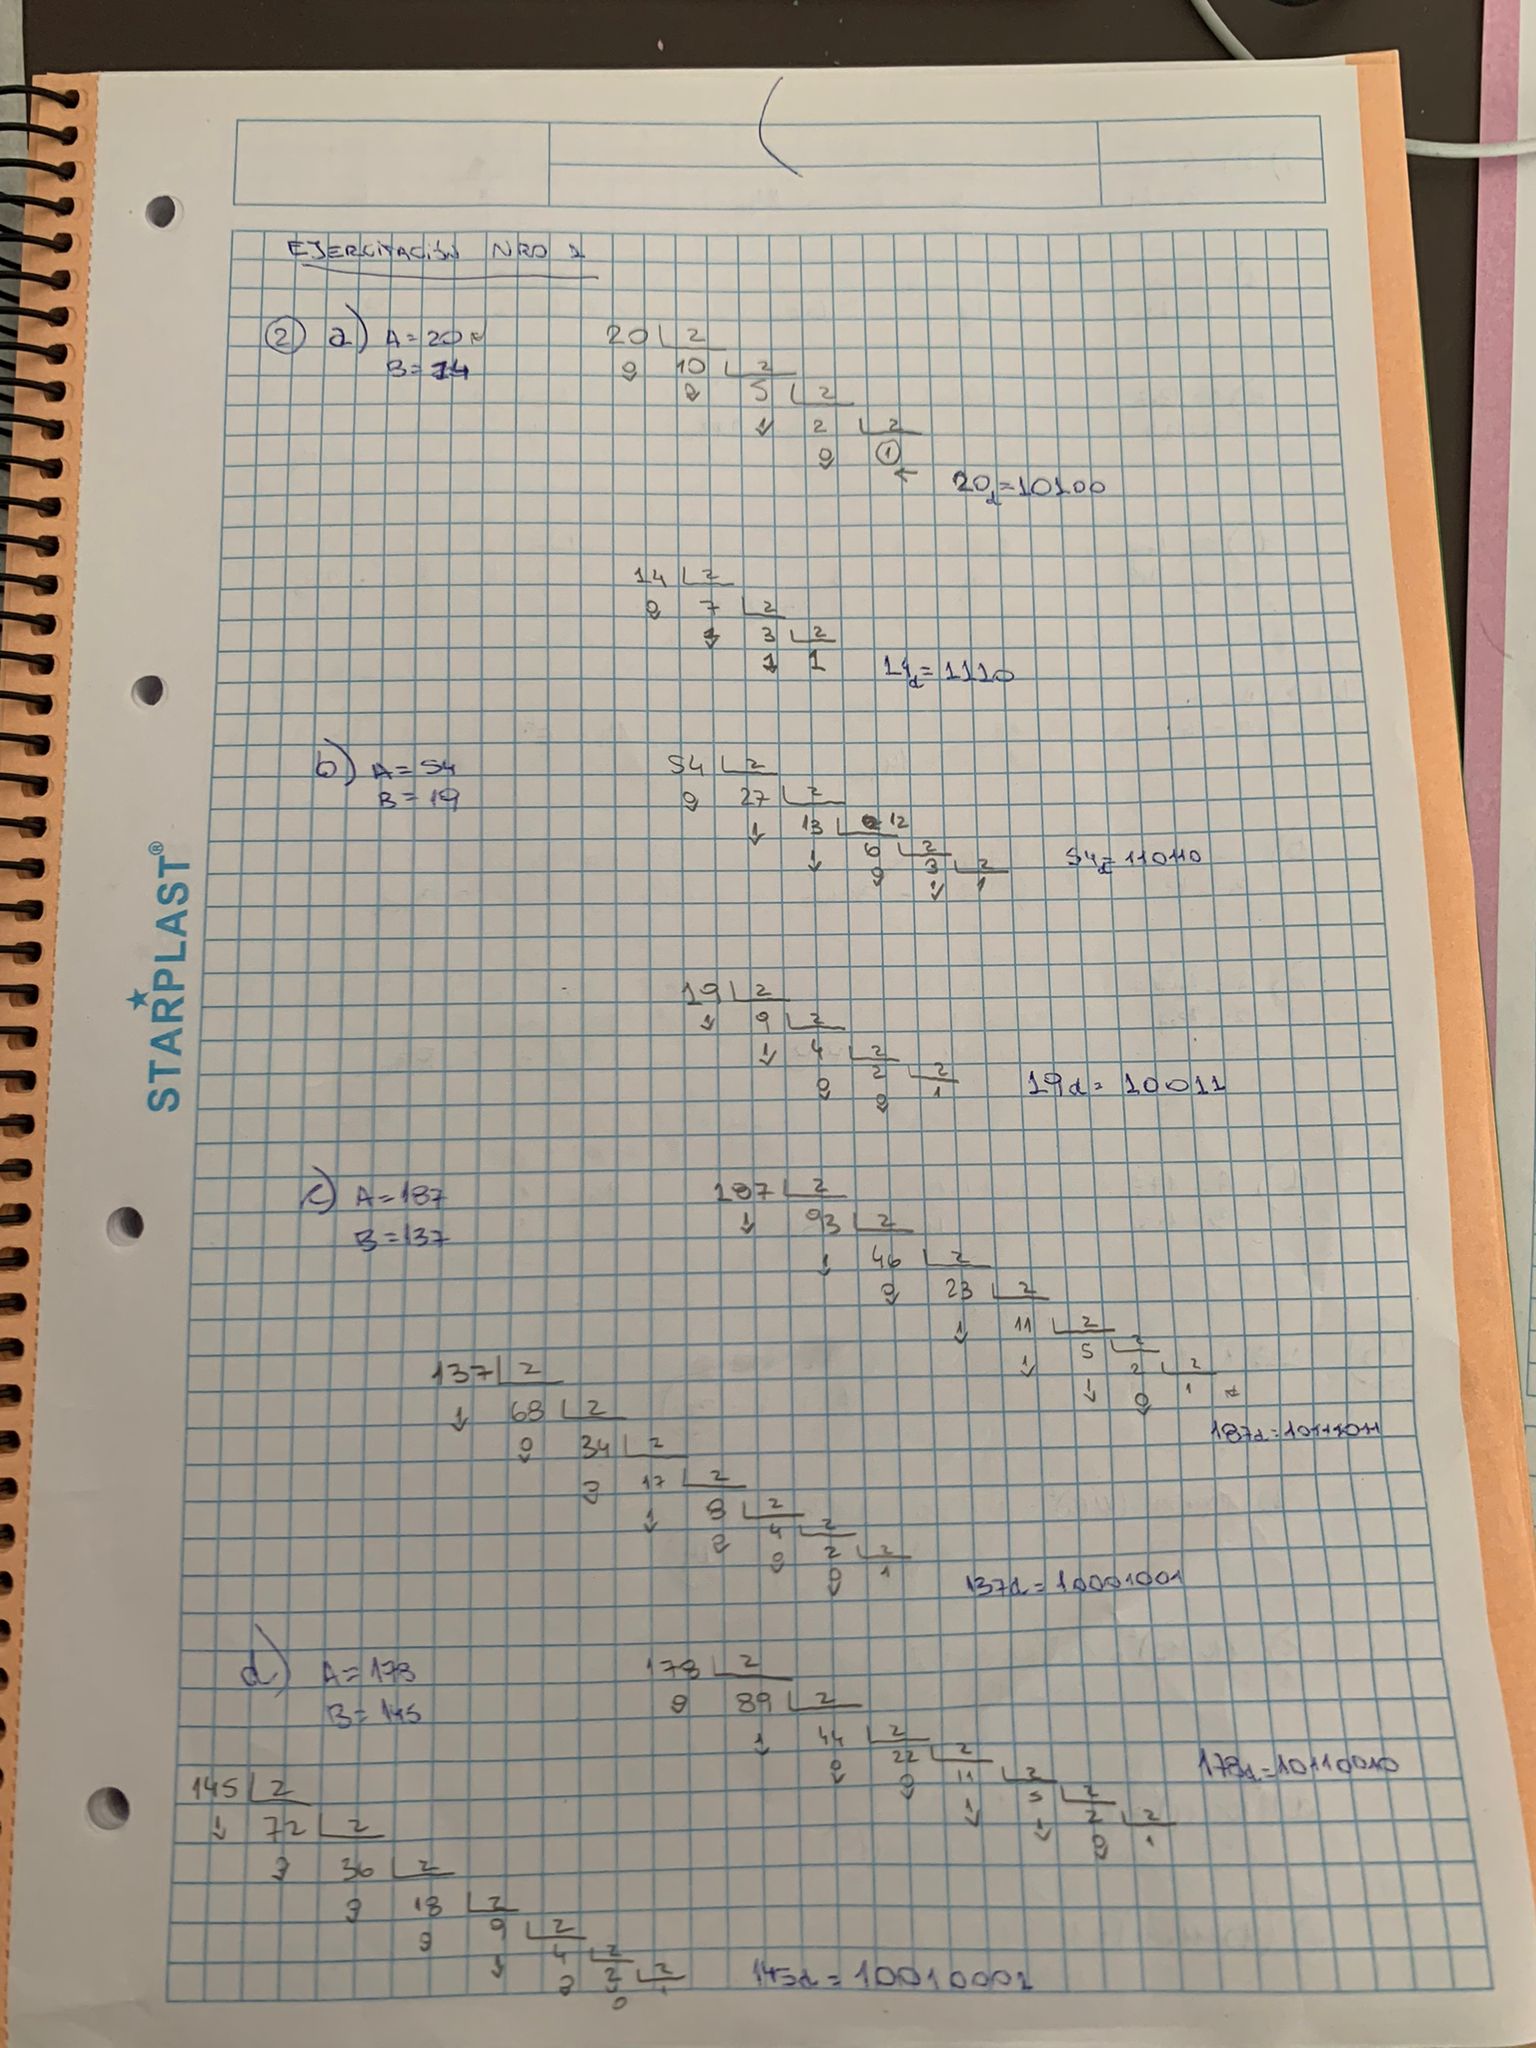 EJERCITACIÓN NRO 1
2 a) A = 20d
B = 14
20 2
0 10 2
0 5 2
1 2 2
0 1
20d = 10100
14 2
0 7 2
1 3 2
1 1
14d = 1110
b) A = 54
B = 19
54 2
0 27 2
1 13 2
1 6 2
0 3 2
1 1
54d = 110110
19 2
1 9 2
1 4 2
0 2 2
0 1
19d = 10011
c) A = 187
B = 137
187 2
1 93 2
1 46 2
0 23 2
1 11 2
1 5 2
1 2 2
0 1
187d = 10111011
137 2
1 68 2
0 34 2
0 17 2
1 8 2
0 4 2
0 2 2
0 1
137d = 10001001
d) A = 178
B = 145
178 2
0 89 2
1 44 2
0 22 2
0 11 2
1 5 2
1 2 2
0 1
178d = 10110010
145 2
1 72 2
0 36 2
0 18 2
0 9 2
1 4 2
0 2 2
0 1
145d = 10010001
STARPLAST®